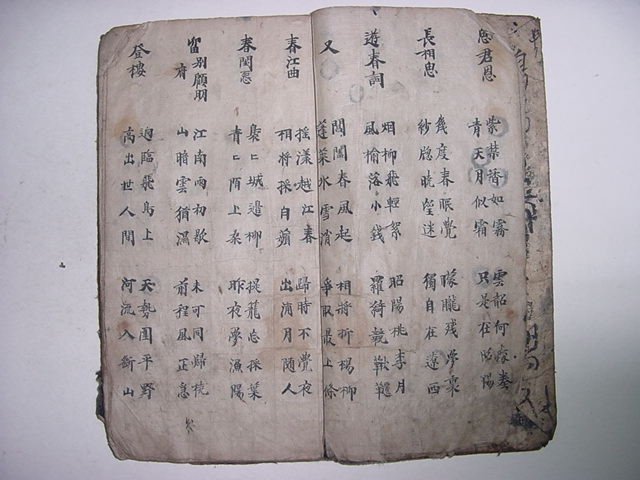 思君恩
紫禁香如霧
青天月似霜
雲韶何處奏
只是在昭陽
長相思
幾度春眠覺
紗牕曉望迷
朦朧殘夢裏
獨自在遼西
遊春詞
烟柳飛輕絮
風榆落小錢
昭陽桃李月
羅綺競鞦韆
又
閶闔春風起
蓬萊氷雪消
相將折楊柳
爭取最上條
春江曲
搖漾越江春
相將採白蘋
歸時不覺夜
出浦月隨人
春閨思
裊〻城邊柳
青〻陌上桑
提籠忘採葉
昨夜夢漁陽
留別顧朋府
江南雨初歇
山暗雲猶濕
未可同歸橈
前程風正急
登樓
迥臨飛鳥上
高出世人間
天勢圍平野
河流入斷山